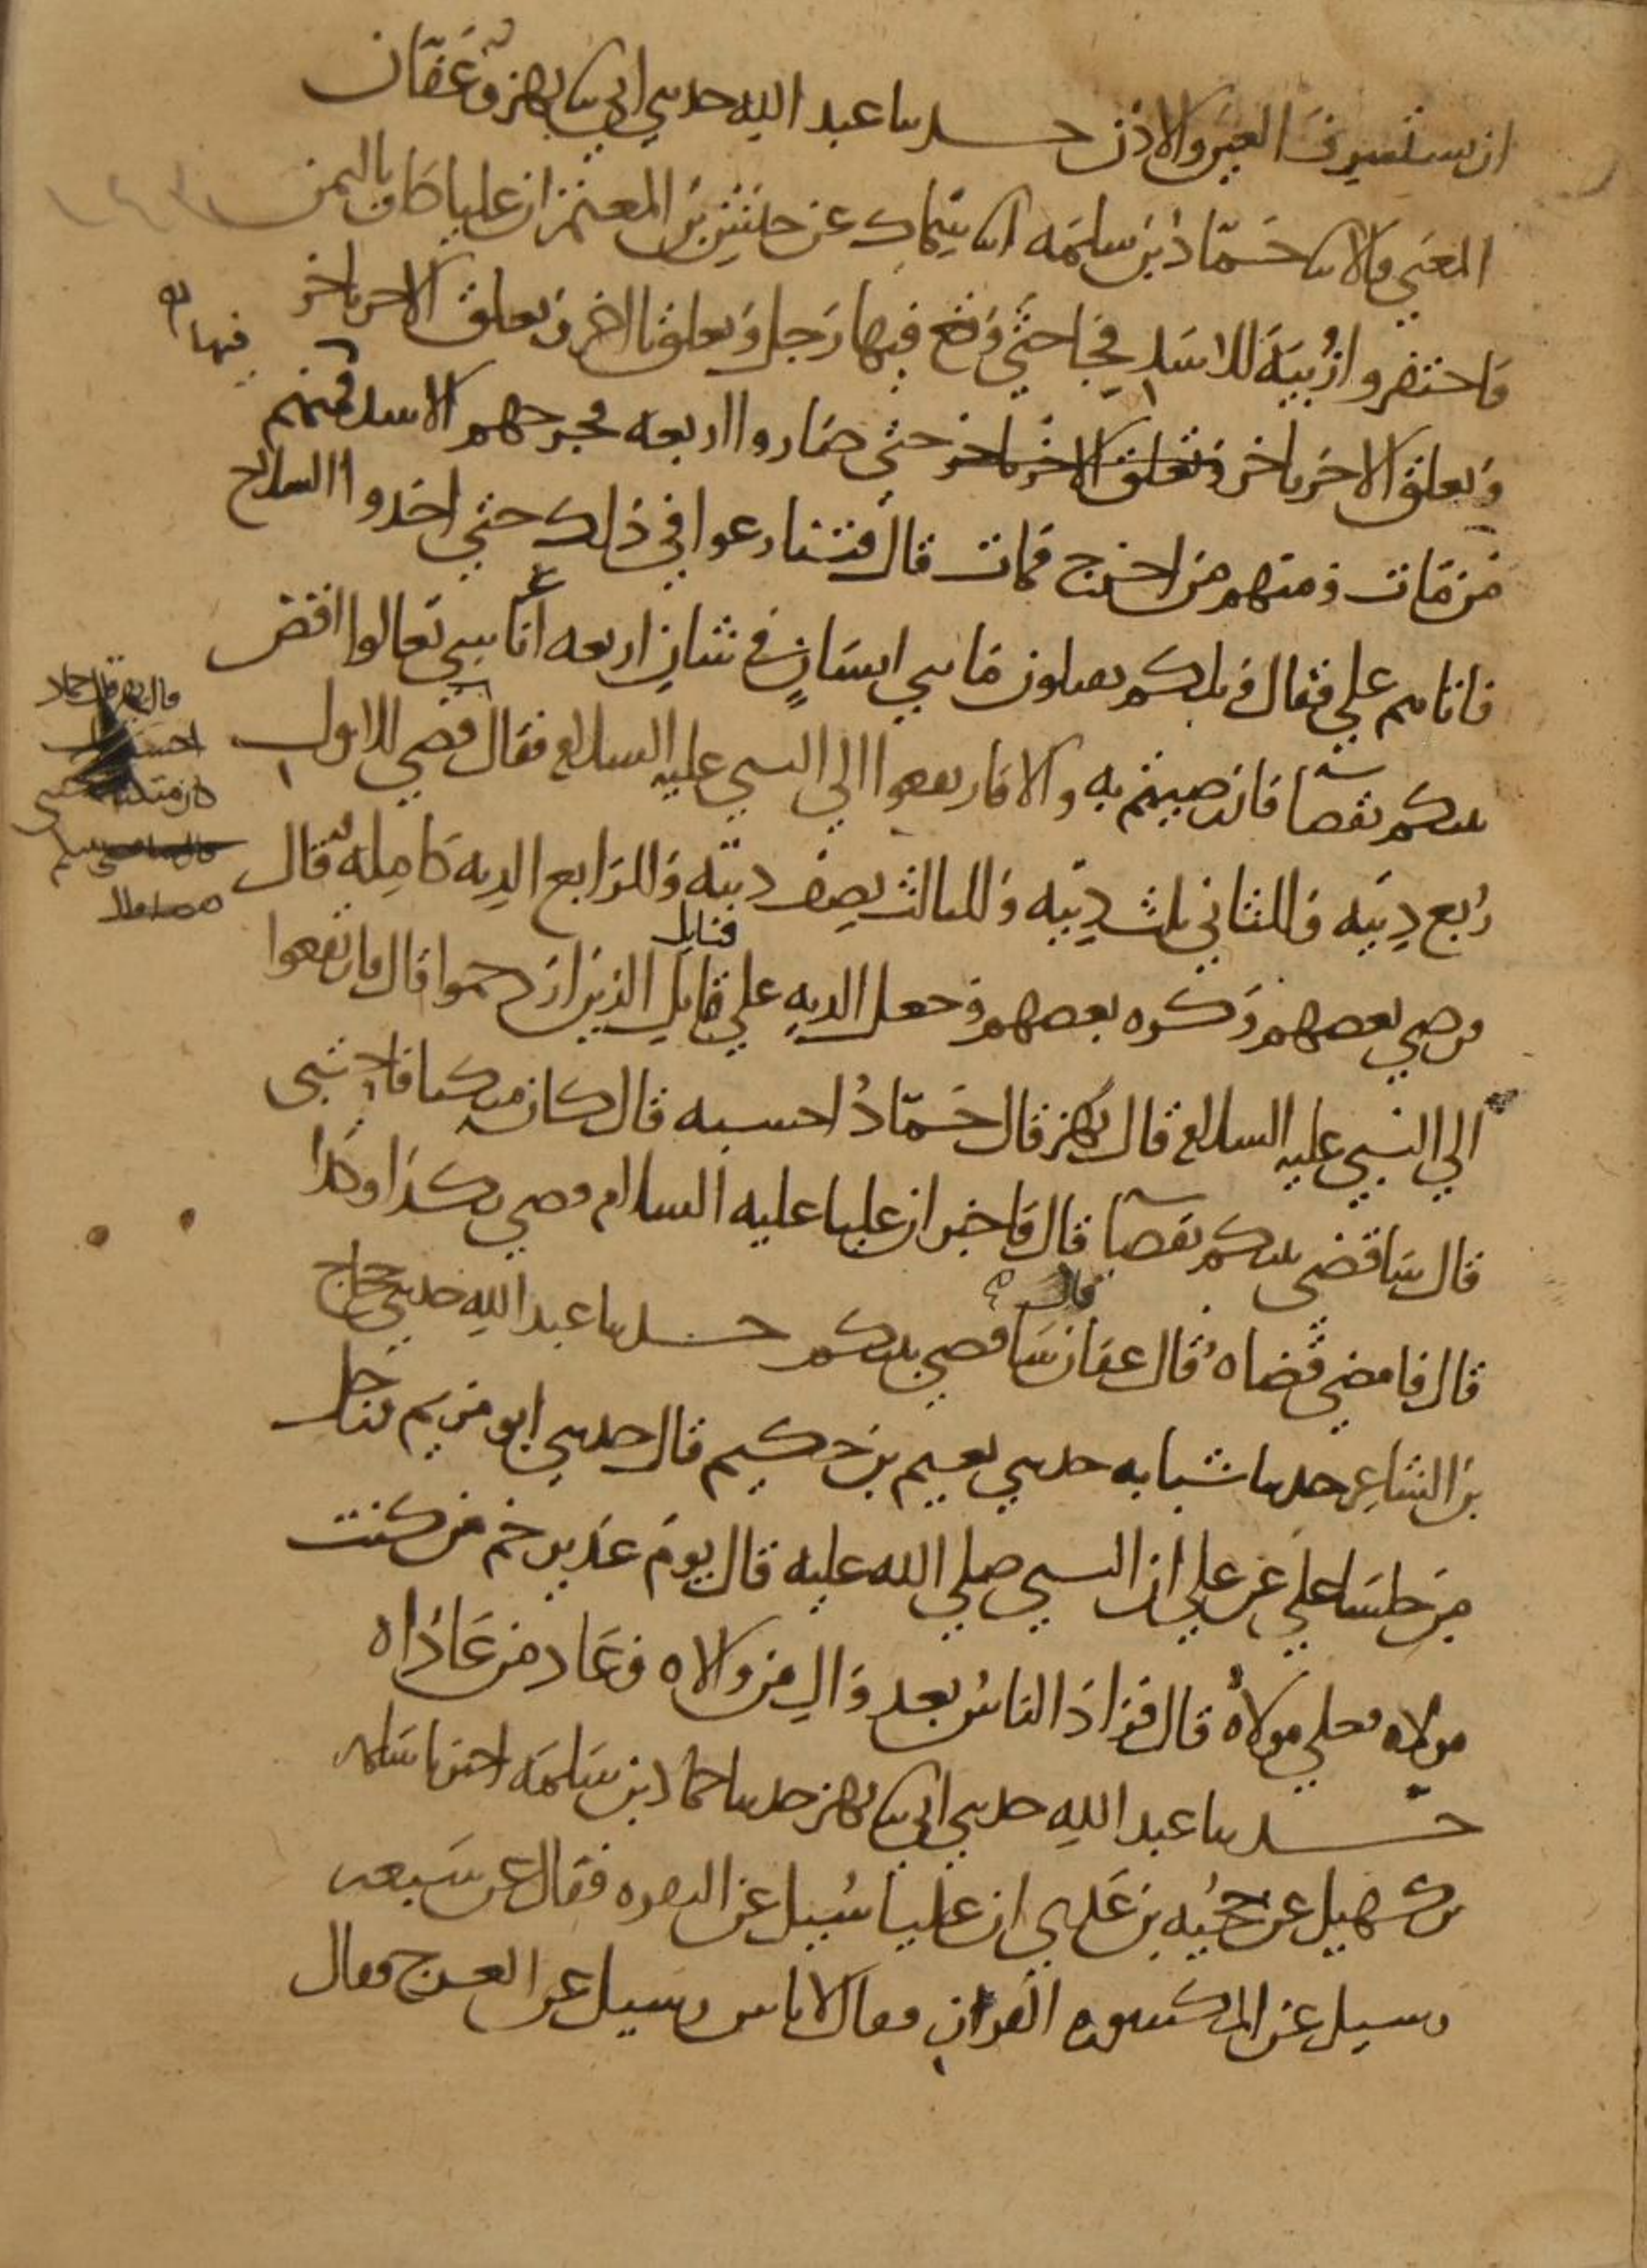 ان نستشرف العين والاذن حدثنا عبد الله حدثني ابي ثنا بهز وعَفّان
المعنى قالا ثنا حَمّاد بن سلمَه انا سِمَاك عن حنش بن المعتمر ان عليا كان باليمن
فاحتفروا زُبيَة للاسَد فجَا حتى وَقع فيها رَجل وَتعلق باخر وتعلق الاخر باخر
وَتعلق الاخر باخر وتعلق الاخر باخر حتى صَاروا اربعه فجرحهم الاسد فيها فمنهم
من مَات ومنهم من اخرج فمات قال فتنازعوا في ذلك حتى اخذوا السلاح
فاتاهم علي فقال ويلكم تقتلون مَاتي انسَانٍ في شان اربعه اناسي تعالوا اقض
بينكم بقضا فان رضيتم به والا فارتفعوا الى النبي عليه السلام فقال قضى للاول
رُبع دِيَته وَللثاني ثلث دِيَته وَللثالث نصف ديَته وَللرَابع الديه كَامِله قال
فرضي بعضهم وَكره بعضهم وجعل الديه على قبايل الذين ازدحموا قال فارتفعوا
الى النبي عليه السلام قال بهز قال حَمّادُ احسبه قال كان متكيا فاحتبى
قال سَاقضي بينكم بقضا قال فاخبر ان عليا عليه السلام قضى بكذا وكذا
قال فامضى قضاه قال عفان سَاقضي بينكم حدثنا عبد الله حدثني حجاج
بن الشاعِر حدثنا شبابه حدثني نعيم بن حكيم قال حدثني ابو مريم ورجل
مِن جلسَا علي عن علي ان النبي صلى الله عليه قال يوم غدير خم من كنت
مولاه فعلي مولاهُ قال فزاد الناسُ بعد وَالِ من والاه وعَاد من عَاداه
حدثنا عبد الله حدثني ابي ثنا بهز حدثنا حماد بن سَلمَه اخبرنا سَلمه
بن كهيل عن حجيه بن عَدي ان عليا سُيل عن البقره فقال عن سَبعه
وسيل عن المكسوره القرن فقال لا باس وسيل عن العرج فقال
فيها
قال بهز قال حماد
احسبه قال
كان متكيا فاحتبى